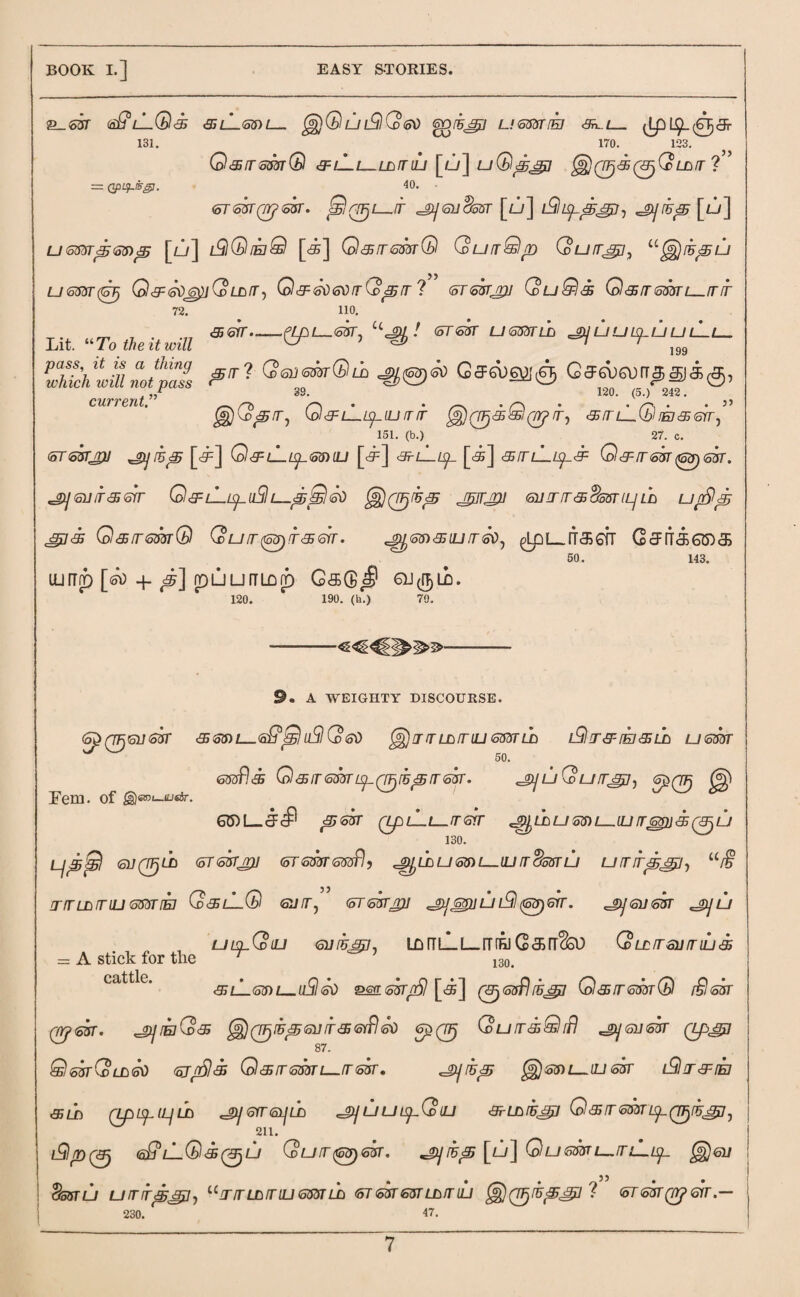 BOOK I.] EASY STORIES.
உன் வீட்டுக் கட்டை இடுப்பிலே ஐந்து பணங் கூட முடிஞ்சு
131. 170. 123.
கொண்டு சட்டமாய் [ப்] படுத்து இருக்குமோ ?”
= முடிந்து. 40.
என்றான். திருடர் அவனை [ப்] பிடித்து, அந்த [ப்]
பணத்தை [ப்] பிடுங்கி [க்] கொண்டு போகிற போது, “இந்தப்
பணஞ் செல்லுமோ, செல்லாதோ ?” என்று பேசிக் கொண்டார்
72. 110.
Lit. “To the it will pass, it is a thing which will not pass current.”
கள்.—மூடன், “ஆ! என் பணம் அப்படிப்பட்ட
199
தா? வேண்டும் ஆனால் செல்லுஞ் செல்லாததுக்கு,
39. 120. (5.) 242.
இதோ, செட்டியார் இருக்கிறார், காட்டுங்கள்,”
151. (b.) 27. c.
என்று அந்த [ச்] செட்டியை [ச்] சுட்டி [க்] காட்டிச் சொன்னான்.
அவர்கள் செட்டியிடத்தில் இருந்த நூறு வராகனையும் பறித்
துக் கொண்டு போனார்கள். ஆகையால், மூடர்கள் சேர்க்கை
50. 143.
யாற் [ல் + த்] றப்பாமற் கெடுதி வரும்.
120. 190. (h.) 70.
9. A WEIGHTY DISCOURSE.
ஒருவன் கடைவீதியிலே இராமாயணம் பிரசங்கம் பண்
50.
ணிக் கொண்டிருந்தான். அப்போது, ஒரு இ
Fem. of இடையன்.
டைச்சி தன் முட்டாள் ஆம்படையானுக்குப்
130.
புத்தி வரும் என்று எண்ணி, ஆம்படையானைப் பார்த்து, “நீ
ராமாயணங் கேட்டு வா,” என்று அனுப்பினாள். அவன் அப்
படியே வந்து, மாட்டாங்கோலை மோவாய்க்
= A stick for the cattle.
130.
கட்டையில் ஊன்றி [க்] குனிந்து கொண்டு நின்
றான். அங்கே இருந்தவர்களில் ஒரு போக்கிரி அவன் முது
87.
கின்மேல் ஏறிக் கொண்டான். அந்த இடையன் பிரசங்
கம் முடியும் அளவும் அப்படியே சுமந்து கொண்டிருந்து,
211.
பிறகு வீட்டுக்குப் போனான். அந்த [ப்] பெண்டாட்டி இவ
னைப் பார்த்து, “ராமாயணம் என்னமாய் இருந்தது ?” என்றாள்.—
230. 47.
7